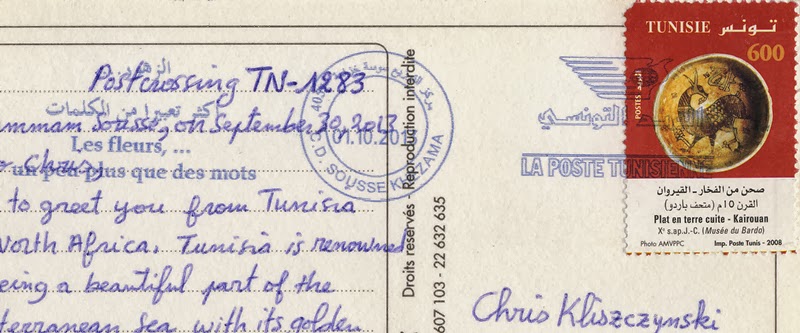 Postcrossing TN-1283
الزهور
أكثر تعبيرا من الكلمات
mmam Sousse, on September 30, 2013
Les fleurs, ...
o Chris,
un peu plus que des mots
to greet you from Tunisia
North Africa. Tunisia is renowned
eing a beautiful part of the
terranean sea with its golden
01.10.201
C.D. SOUSSE KHEZAMA
Droits reservés - Reproduction interdite
607 103 - 22 632 635
LA POSTE TUNISIENNE
TUNISIE تونس
600
POSTES البريد
صحن من الفخار - القيروان
القرن 10م (متحف باردو)
Plat en terre cuite - Kairouan
Xᵉ s.ap.J.-C. (Musée du Bardo)
Photo AMVPPC Imp. Poste Tunis - 2008
Chris Kliszczynski